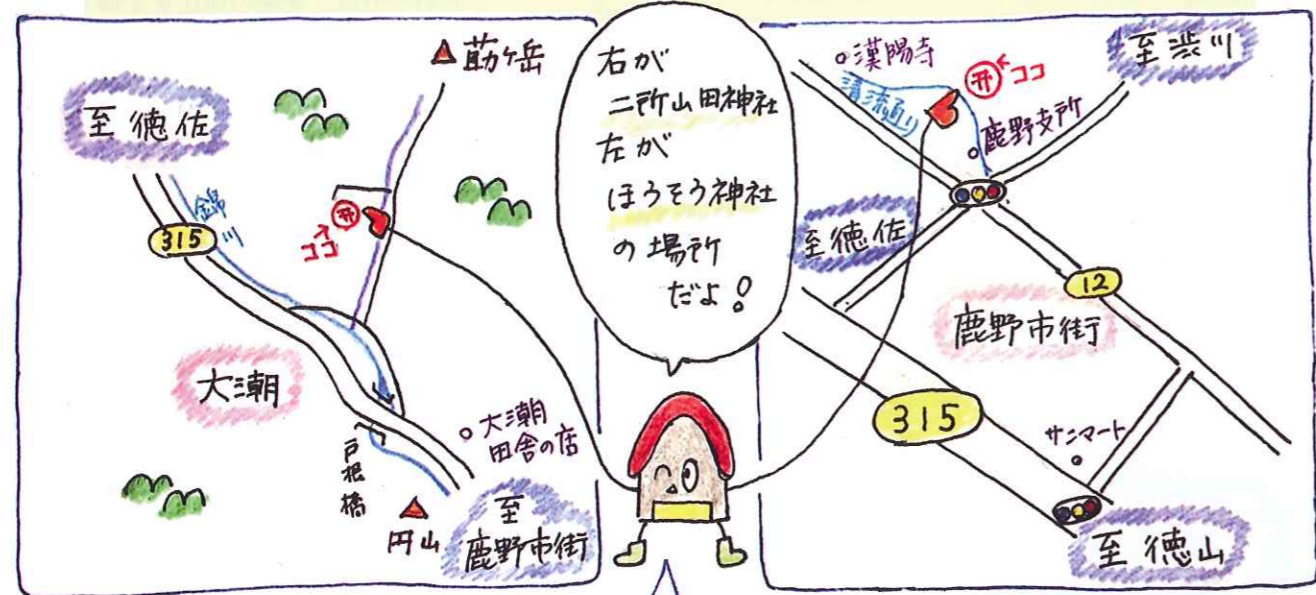 莇ヶ岳
至徳佐
錦川
315
ココ
大潮
大潮
田舎の店
戸根橋
円山
至
鹿野市街
右が
二所山田神社
左が
ほうそう神社
の場所
だよ!
漢陽寺
清流通り
ココ
至渋川
鹿野支所
至徳佐
12
鹿野市街
315
サンマート
至徳山